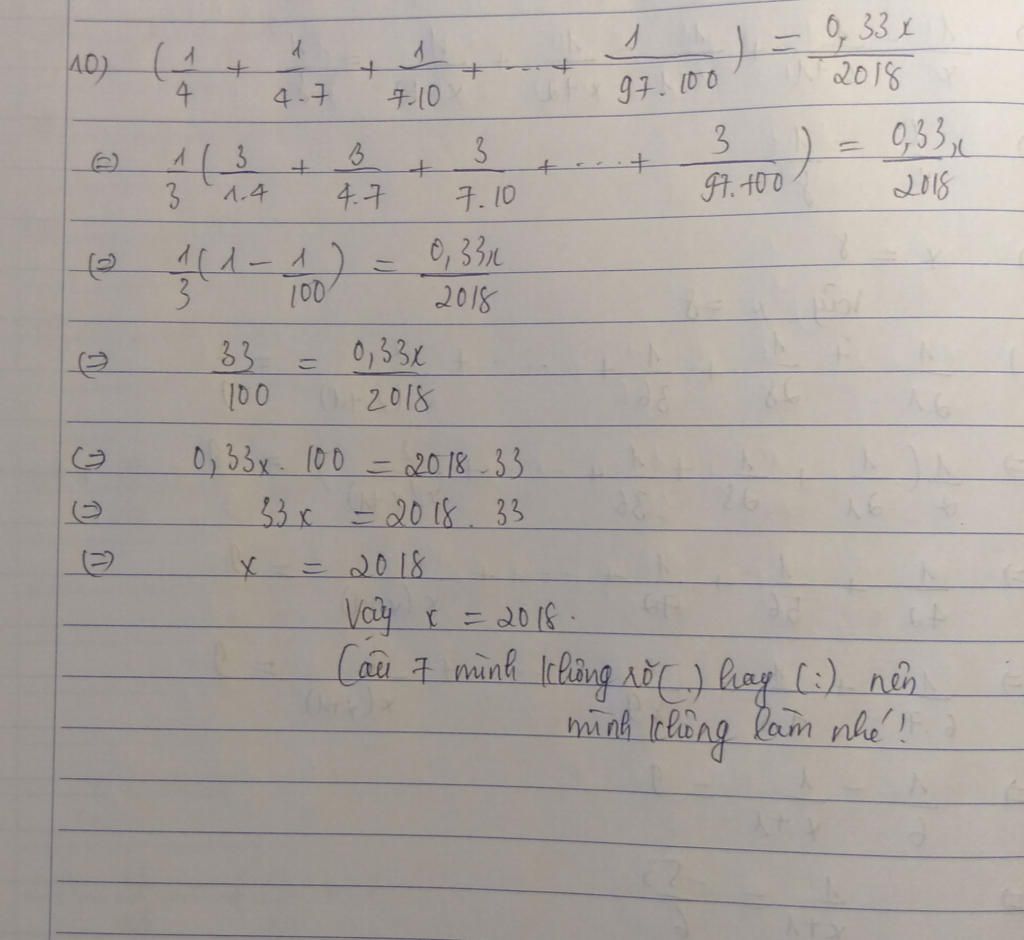 10) (1/4 + 1/4.7 + 1/7.10 + ... + 1/97.100) = 0,33x/2018
⇔ 1/3(3/1.4 + 3/4.7 + 3/7.10 + ... + 3/97.100) = 0,33x/2018
⇔ 1/3(1 - 1/100) = 0,33x/2018
⇔ 33/100 = 0,33x/2018
⇔ 0,33x. 100 = 2018.33
⇔ 33x = 2018.33
⇔ x = 2018
Vậy x = 2018.
Câu 7 mình không rõ (.) hay (:) nên
mình không làm nhé!